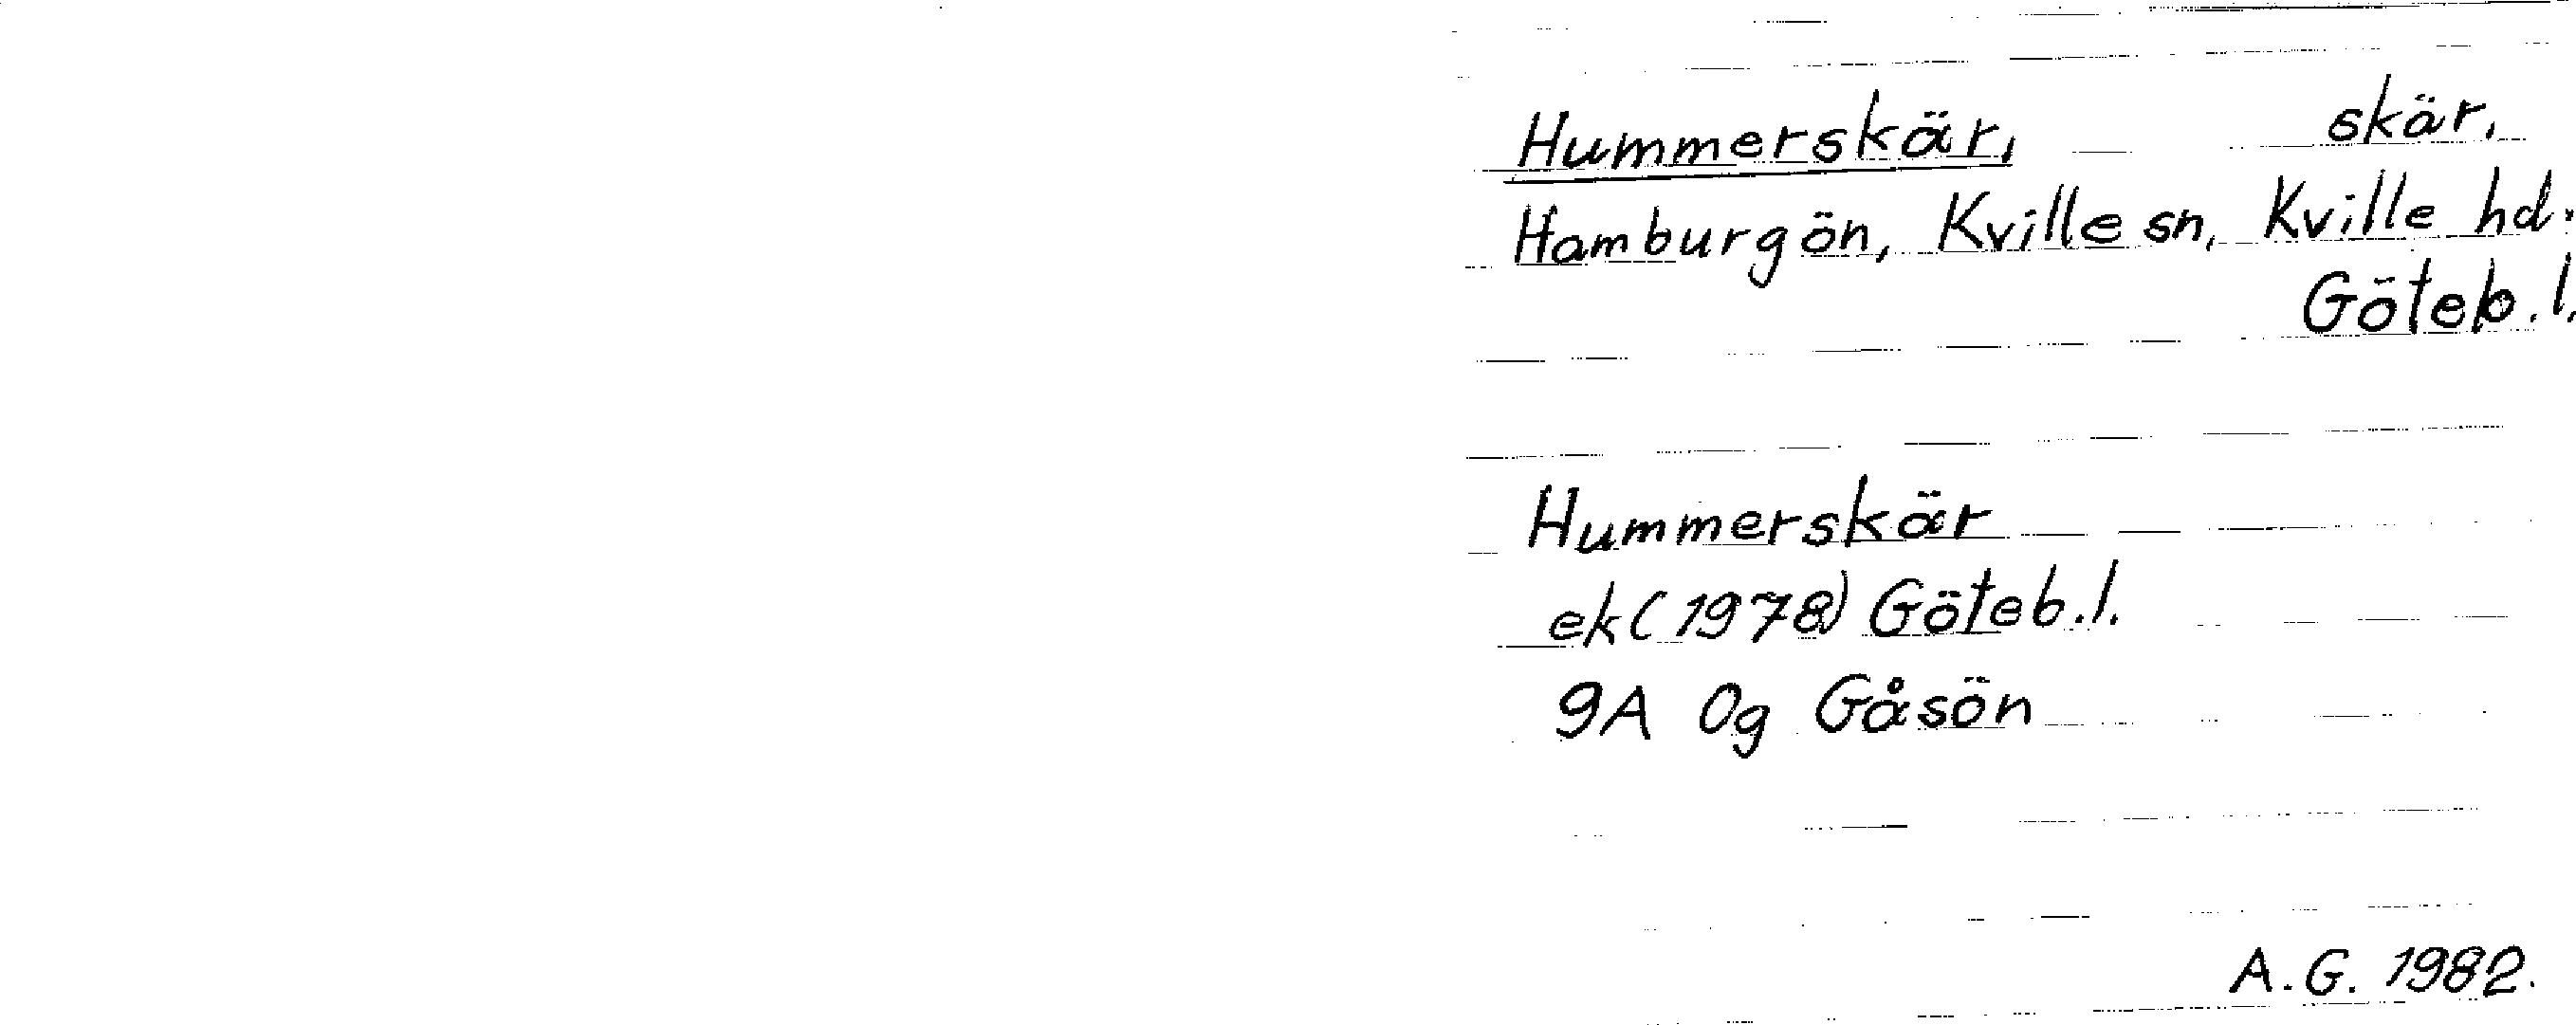 Hummerskär, skär,
Hamburgön, Kville sn, Kville hd.
Göteb. l.
Hummerskär
ek (1978) Göteb. l.
9A 0g Gåsön
A. G. 1982.